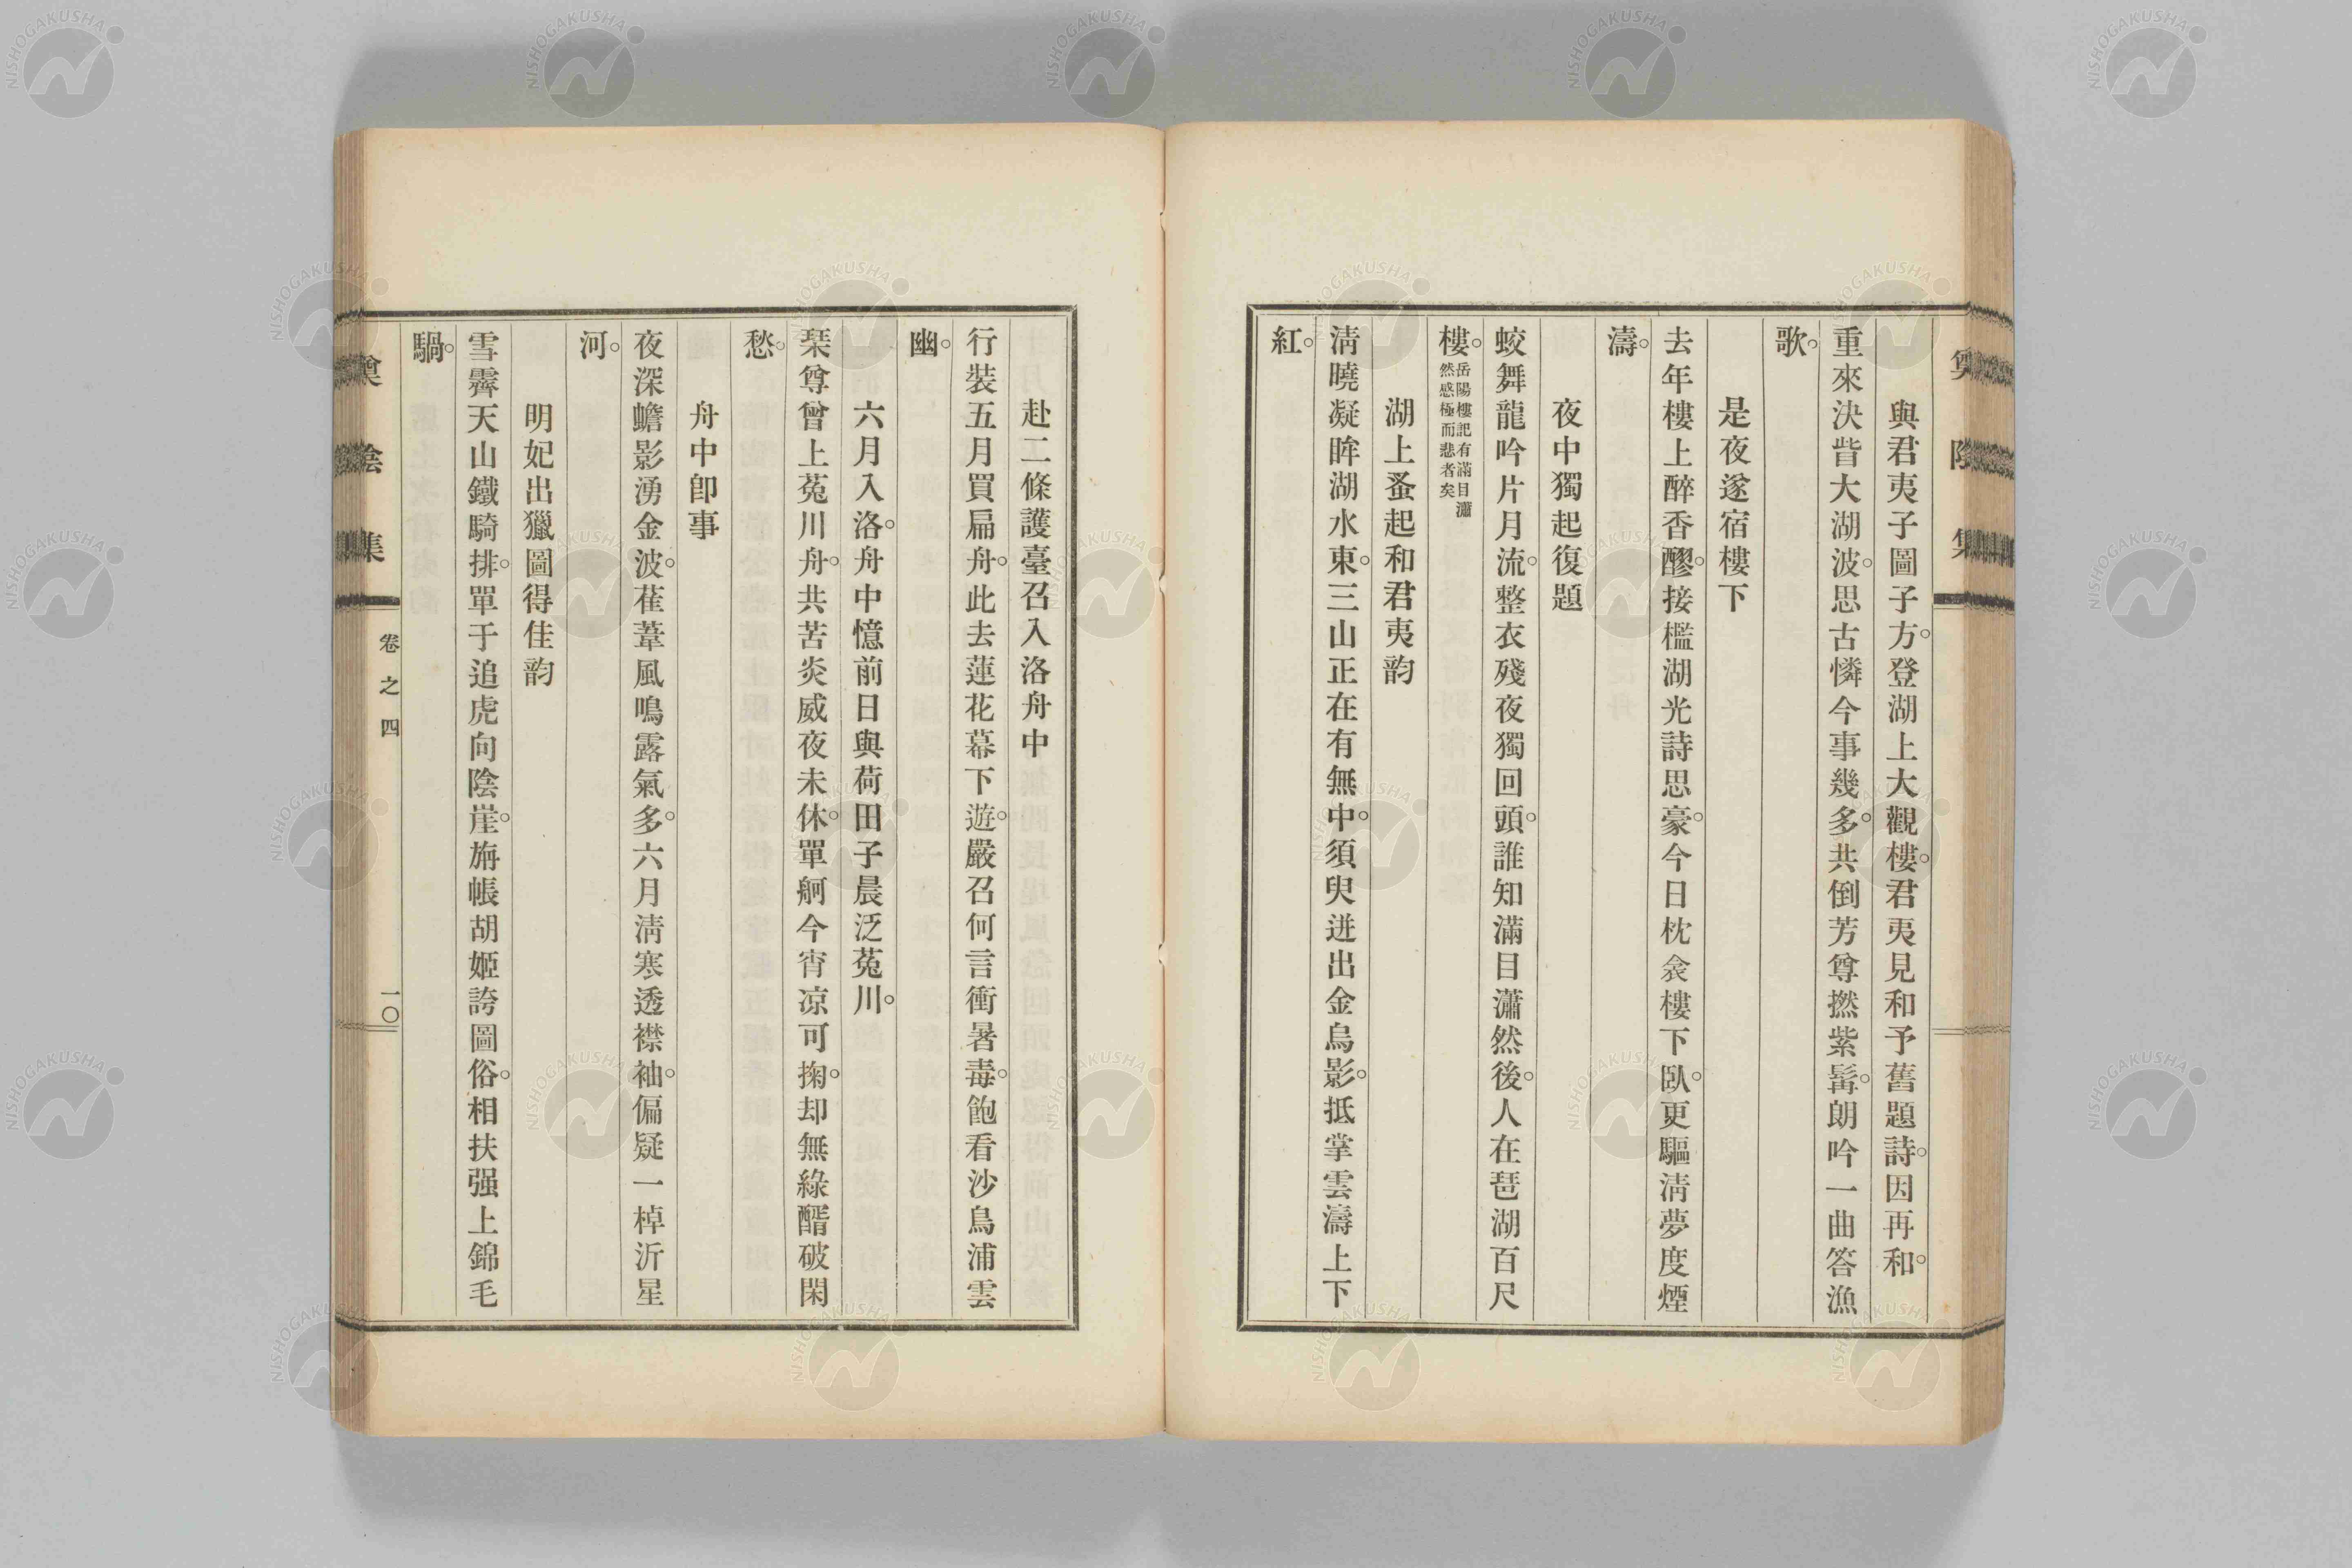 與君夷子圖子方。登湖上大觀樓。君夷見和予舊題詩。因再和。
重來決眥大湖波。思古憐今事幾多。共倒芳尊撚紫髯。朗吟一曲答漁
歌。
是夜遂宿樓下
去年樓上醉香醪。接檻湖光詩思豪。今日枕衾樓下臥。更驅淸夢度煙
濤。
夜中獨起復題
蛟舞龍吟片月流。整衣殘夜獨回頭。誰知滿目瀟然後。人在琶湖百尺
樓。岳陽樓記有滿目瀟
然感極而悲者矣
湖上蚤起和君夷韵
淸曉凝眸湖水東。三山正在有無中。須臾迸出金烏影。抵掌雲濤上下
紅。
赴二條護臺召入洛舟中
行裝五月買扁舟。此去蓮花幕下遊。嚴召何言衝暑毒。飽看沙鳥浦雲
幽。
六月入洛。舟中憶前日與荷田子晨泛菟川。
琹尊曾上菟川舟。共苦炎威夜未休。單舸今宵凉可掬。却無綠醑破閑
愁。
舟中卽事
夜深蟾影湧金波。萑葦風鳴露氣多。六月淸寒透襟袖。偏疑一棹泝星
河。
明妃出獵圖得佳韵
雪霽天山鐵騎排。單于追虎向陰崖。旃帳胡姬誇圖俗。相扶强上錦毛
騧。
陰集
卷之四
一〇